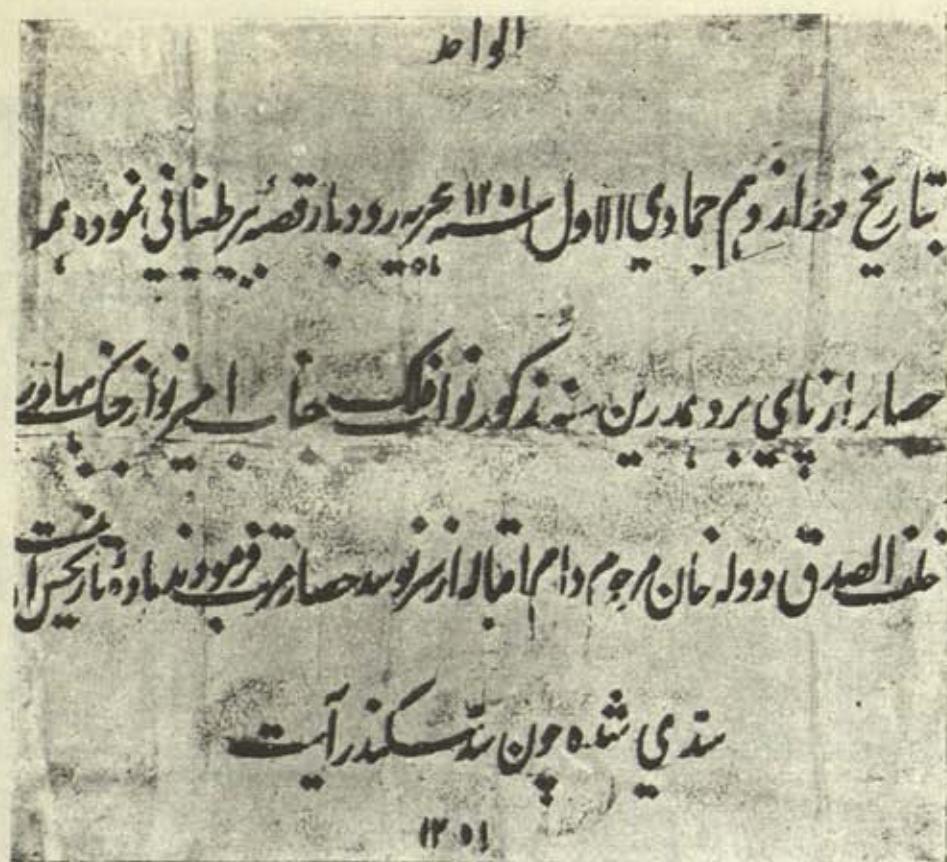 الواحد
بتاریخ دوازدهم جمادي الاول سنه ۱۲۵۱ هجریه رودبار قصبه بر طغیاني نموده همه
حصار از پاي برد همدرین سنه مذکور نواب فلک جناب امیر نواز جنک بهادر
خلف الصدق دوله خان مرحوم دام اقباله از سر نو سد حصار مرتب فرمودند ماده تاریخش اینست
سدي شده چون سدّ سکندر آیت
۱۲۵۱